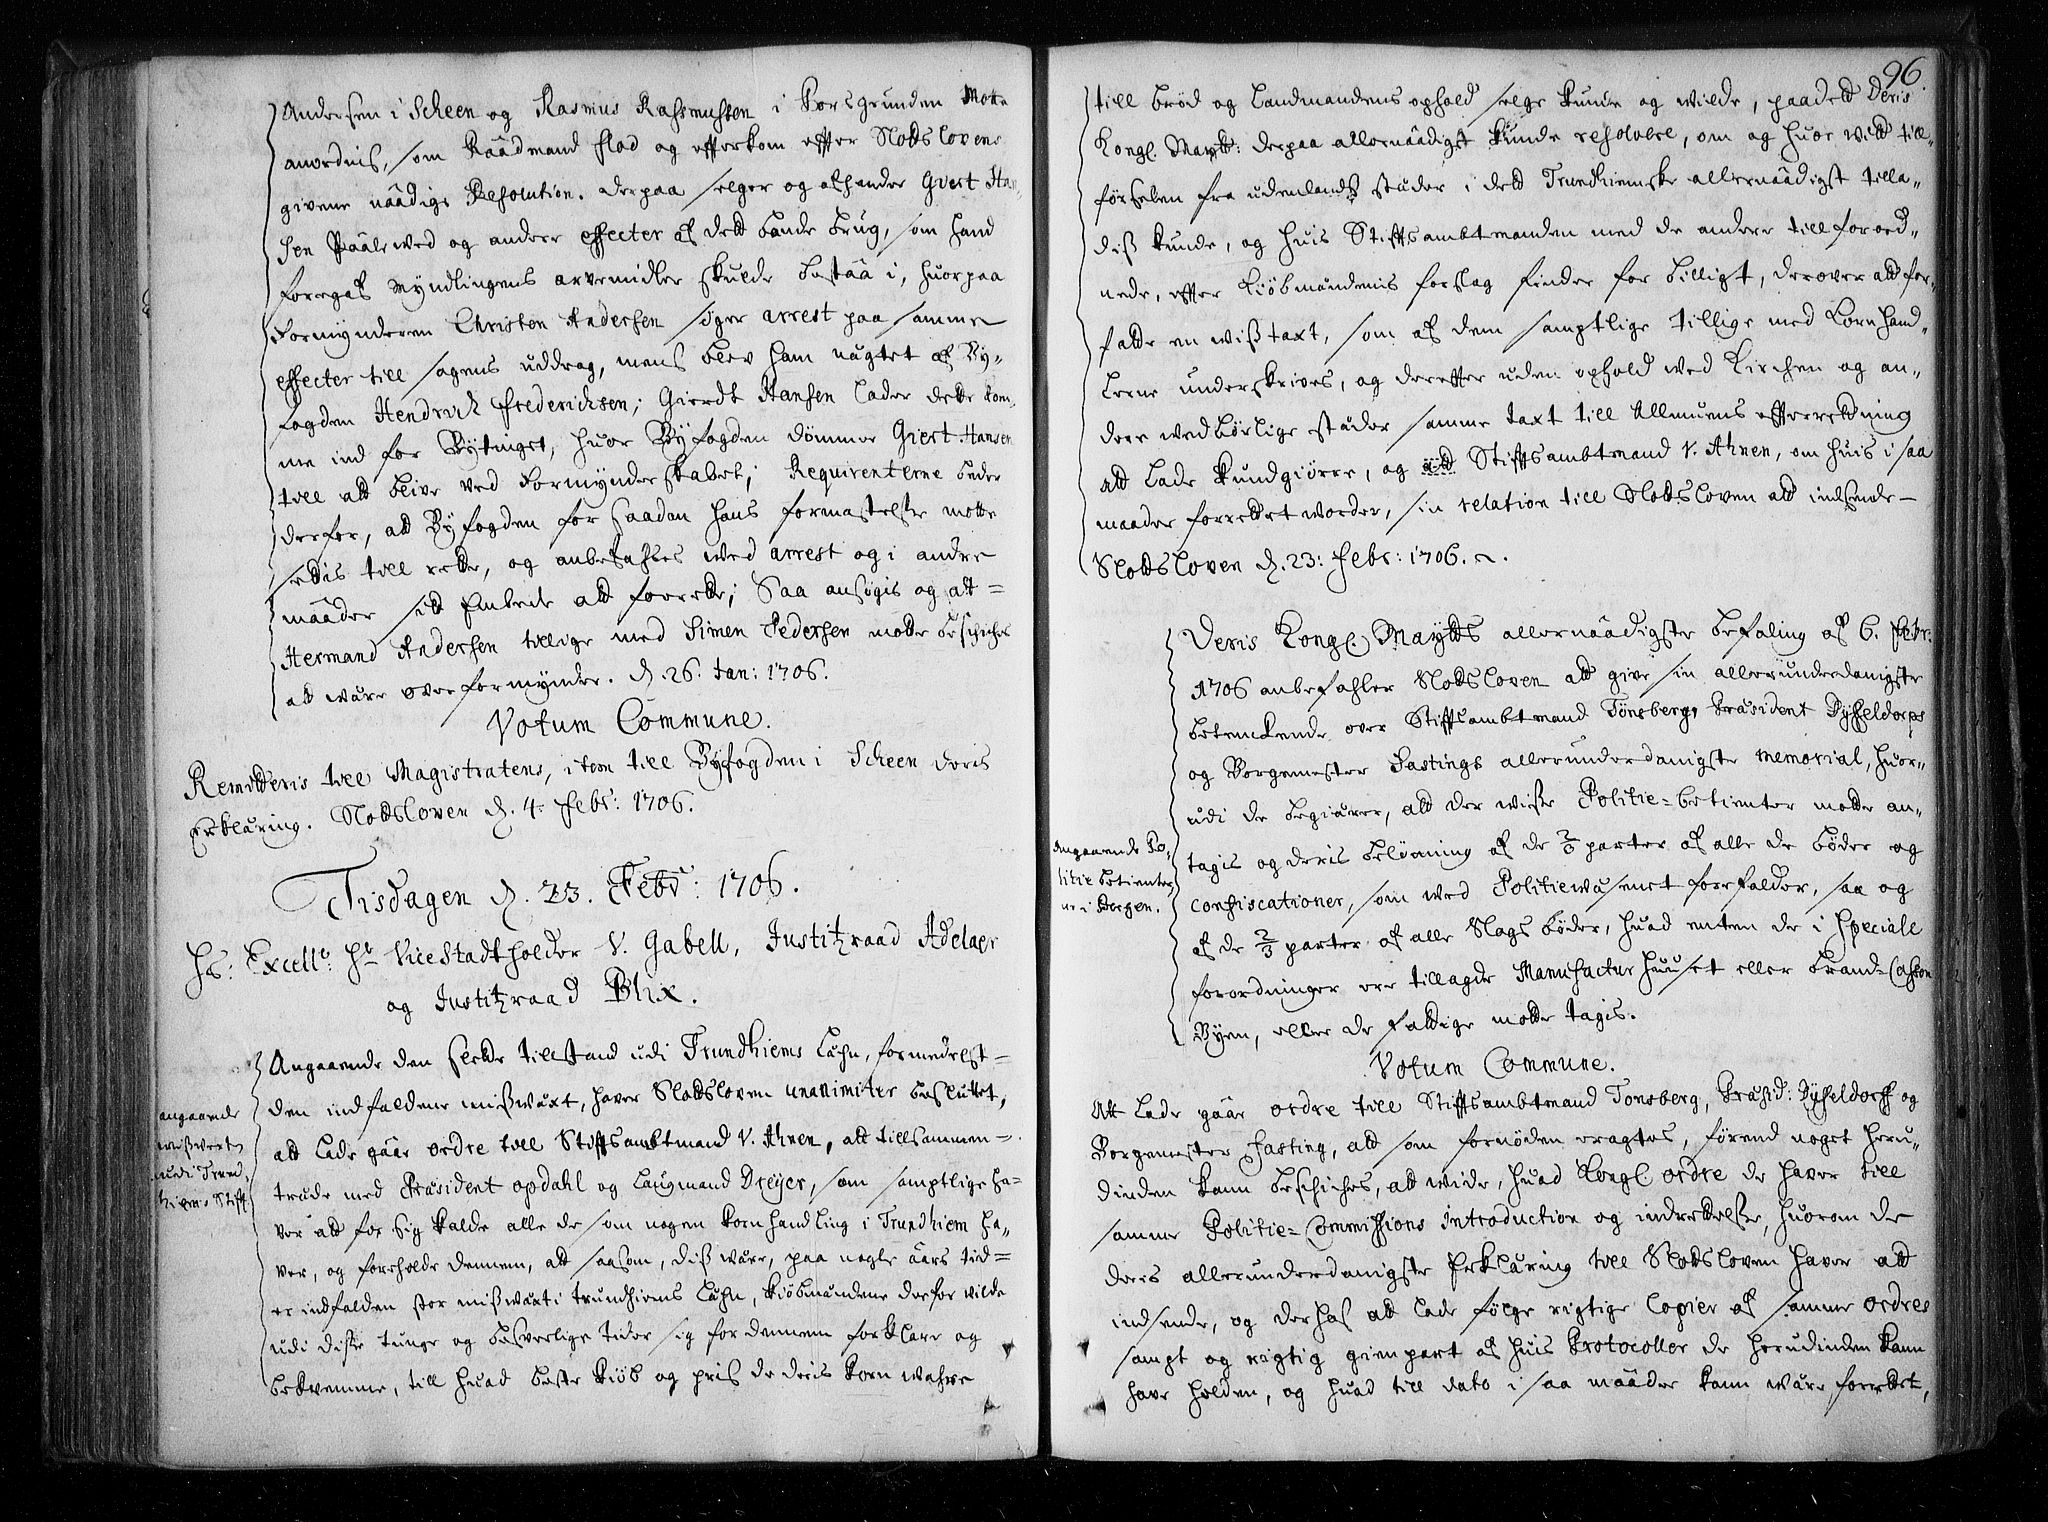 Andersen i Scheen og Rasmus Rassmussen i Porsgrunden motte
anordnis, som Raadmand flod og efterkom efter Slotslovens
givene naadige Resolution. derpaa selger og afhender Giert Han-
sen Paaleved og andere effecter af dett Lande brug, som hand
foregaf Myndlingens arvemidler skulde bestaa i, huorpaa
Formynderen Christen Andersen søger arrest paa samme
effecter till sagens uddrag, mens blev ham nægtet af By-
fogden Hendrich Friderichsen; Gierdt Hansen lader dette kom-
me ind for Bytinget, huor Byfogden dømmer Giert Hansen
till att blive ved Formynderskabet; Requirenterne beder
derfor, att Byfogden for saadan hans formastelse motte
settis till rette, og anbefahles med arrest og i andre
maader sit Embede att forrette; Saa ansøgis og att
Hermand Andersen tillige med Simen Pedersen motte beschiches
att være overformynder. d. 26. Jan: 1706.
Votum Commune.
Remitteris till Magistratens, item till Byfogden i Scheen deris
Erklæring. Slotsloven d. 4. Febr: 1706.
Tisdagen d. 23. Febr: 1706.
Hs: Excell: Hr Vice Stadtholder V. Gabell, Justitzraad Adelaer
og Justitzraad Blix.
angaaende
misvexten
udi Trond-
hiems Stift
Angaaende den slette tillstand udi Trundhiems Læhn, formedelst
den indfaldene misvæxt, haver Slotsloven unanimiter besluttet,
att lade gaar ordre till Stiftsambtmand V. Ahnen, att tillsammen-
trede med Præsident opdahl og Laugmand Dreyer, som samptlige ha-
ver att for sig kalde alle de som nogen kornhandling i Trundhiem ha-
ver, og foreholde dennem, att saasom, dis være, paa nogle aars tid
er indfalden stor misvæxt i trundhiems Læhn, kiøbmændene derfor vilde
udi disse tunge og besverlige tider sig for dennem forklare og
beqvemme, till huad beste kiøb og pris de deris korn wahre
96.
till brød og Landmandens ophold selge kunde og wilde, paadet Deris
Kongl. Maytt: derpaa allernaadigst kunde resolvere, om og huor vitt till-
førselen fra udenlands stæder i dett Trundhiemske allernaadigst tilla-
dis kunde, og huis Stiftsambtmanden med de andere tillforord-
nede, efter Kiøbmændenis forslag finder for billigt, derover att for-
fatte en wis taxt, som af dem samptlige tillige med Kornhand-
lerne underskrives, og derefter uden ophold wed Kirchen og an-
dere wedbørlige stæder samme taxt till Allmuens efterretning
att lade kundgiøre, og att Stiftsambtmand V. Ahnen, om huis i saa
maader forrettet worder, sin relation till Slotsloven att indsende
Slotsloven d. 23: Febr: 1706.
Angaaende Po-
litie betienter-
ne i Bergen.
Deris Kongl. Maytts allernaadigste befaling af 6. Febr:
1706 anbefahler Slotsloven att give sin allerunderdanigste
betenkende over Stiftsambtmand Tønsberg, Præsident Dyssseldorps
og Borgemester Fastings allerunderdanigste memorial, huor-
udi de begiærer, att der wisse Politie-betienter motte an-
tagis og deris belønning af de 2/3 parter af alle de bøder og
confiscationer, som wed Politiewæsenet forefalder, saa og
af de 2/3 parter af alle slags bøder, huad enten de i speciale
forordninger ere tillagde Manufactur huuset eller brand Cassen
Byen, eller de fattige motte tagis.
Votum Commune.
Att lade gaar ordre till Stiftsambtmand Tonsberg, Præsid: Dysseldorff og
Borgemester Fasting, att som fornøden eragtes, førend noget heru-
dinden kann beschiches, att wide, huad Kongl. ordre de haver till
samme Politie-Commissions introduction og indrettelse, huorom de
deris allerunderdanigste Erklæring till Slotsloven haver att
indsende, og derhos att lade følge rigtige Copier af samme ordres
sampt og rigtig gienpart af huis Protocoller de herudinden kann
have holden, og huad till dato i saa maader kann være forrettet,